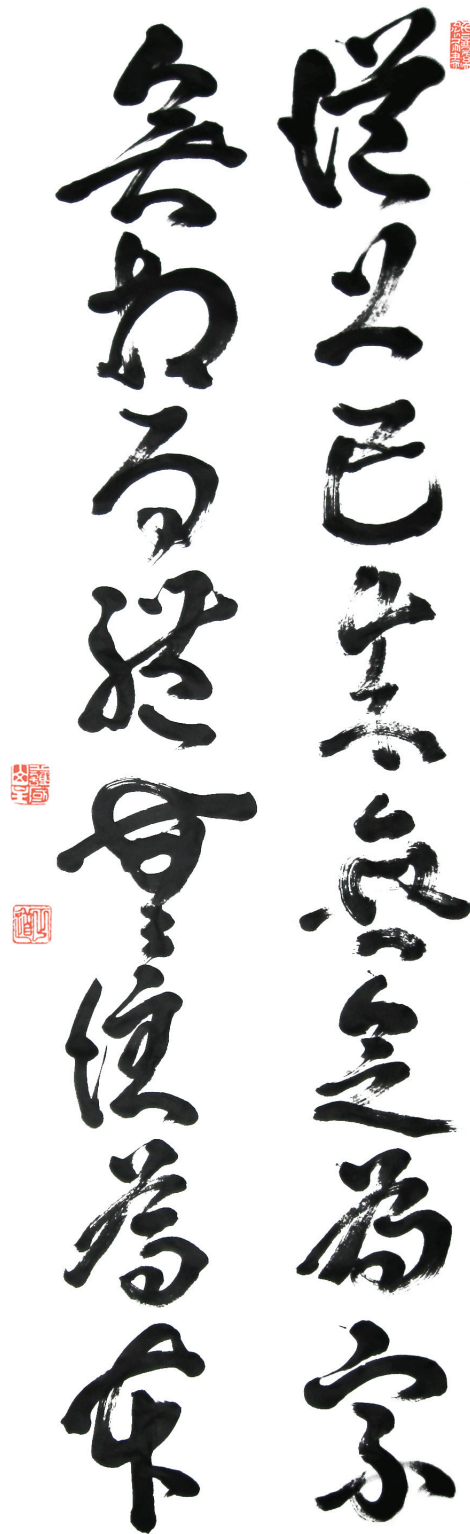 從上已來無念為宗
無相為體無住為本